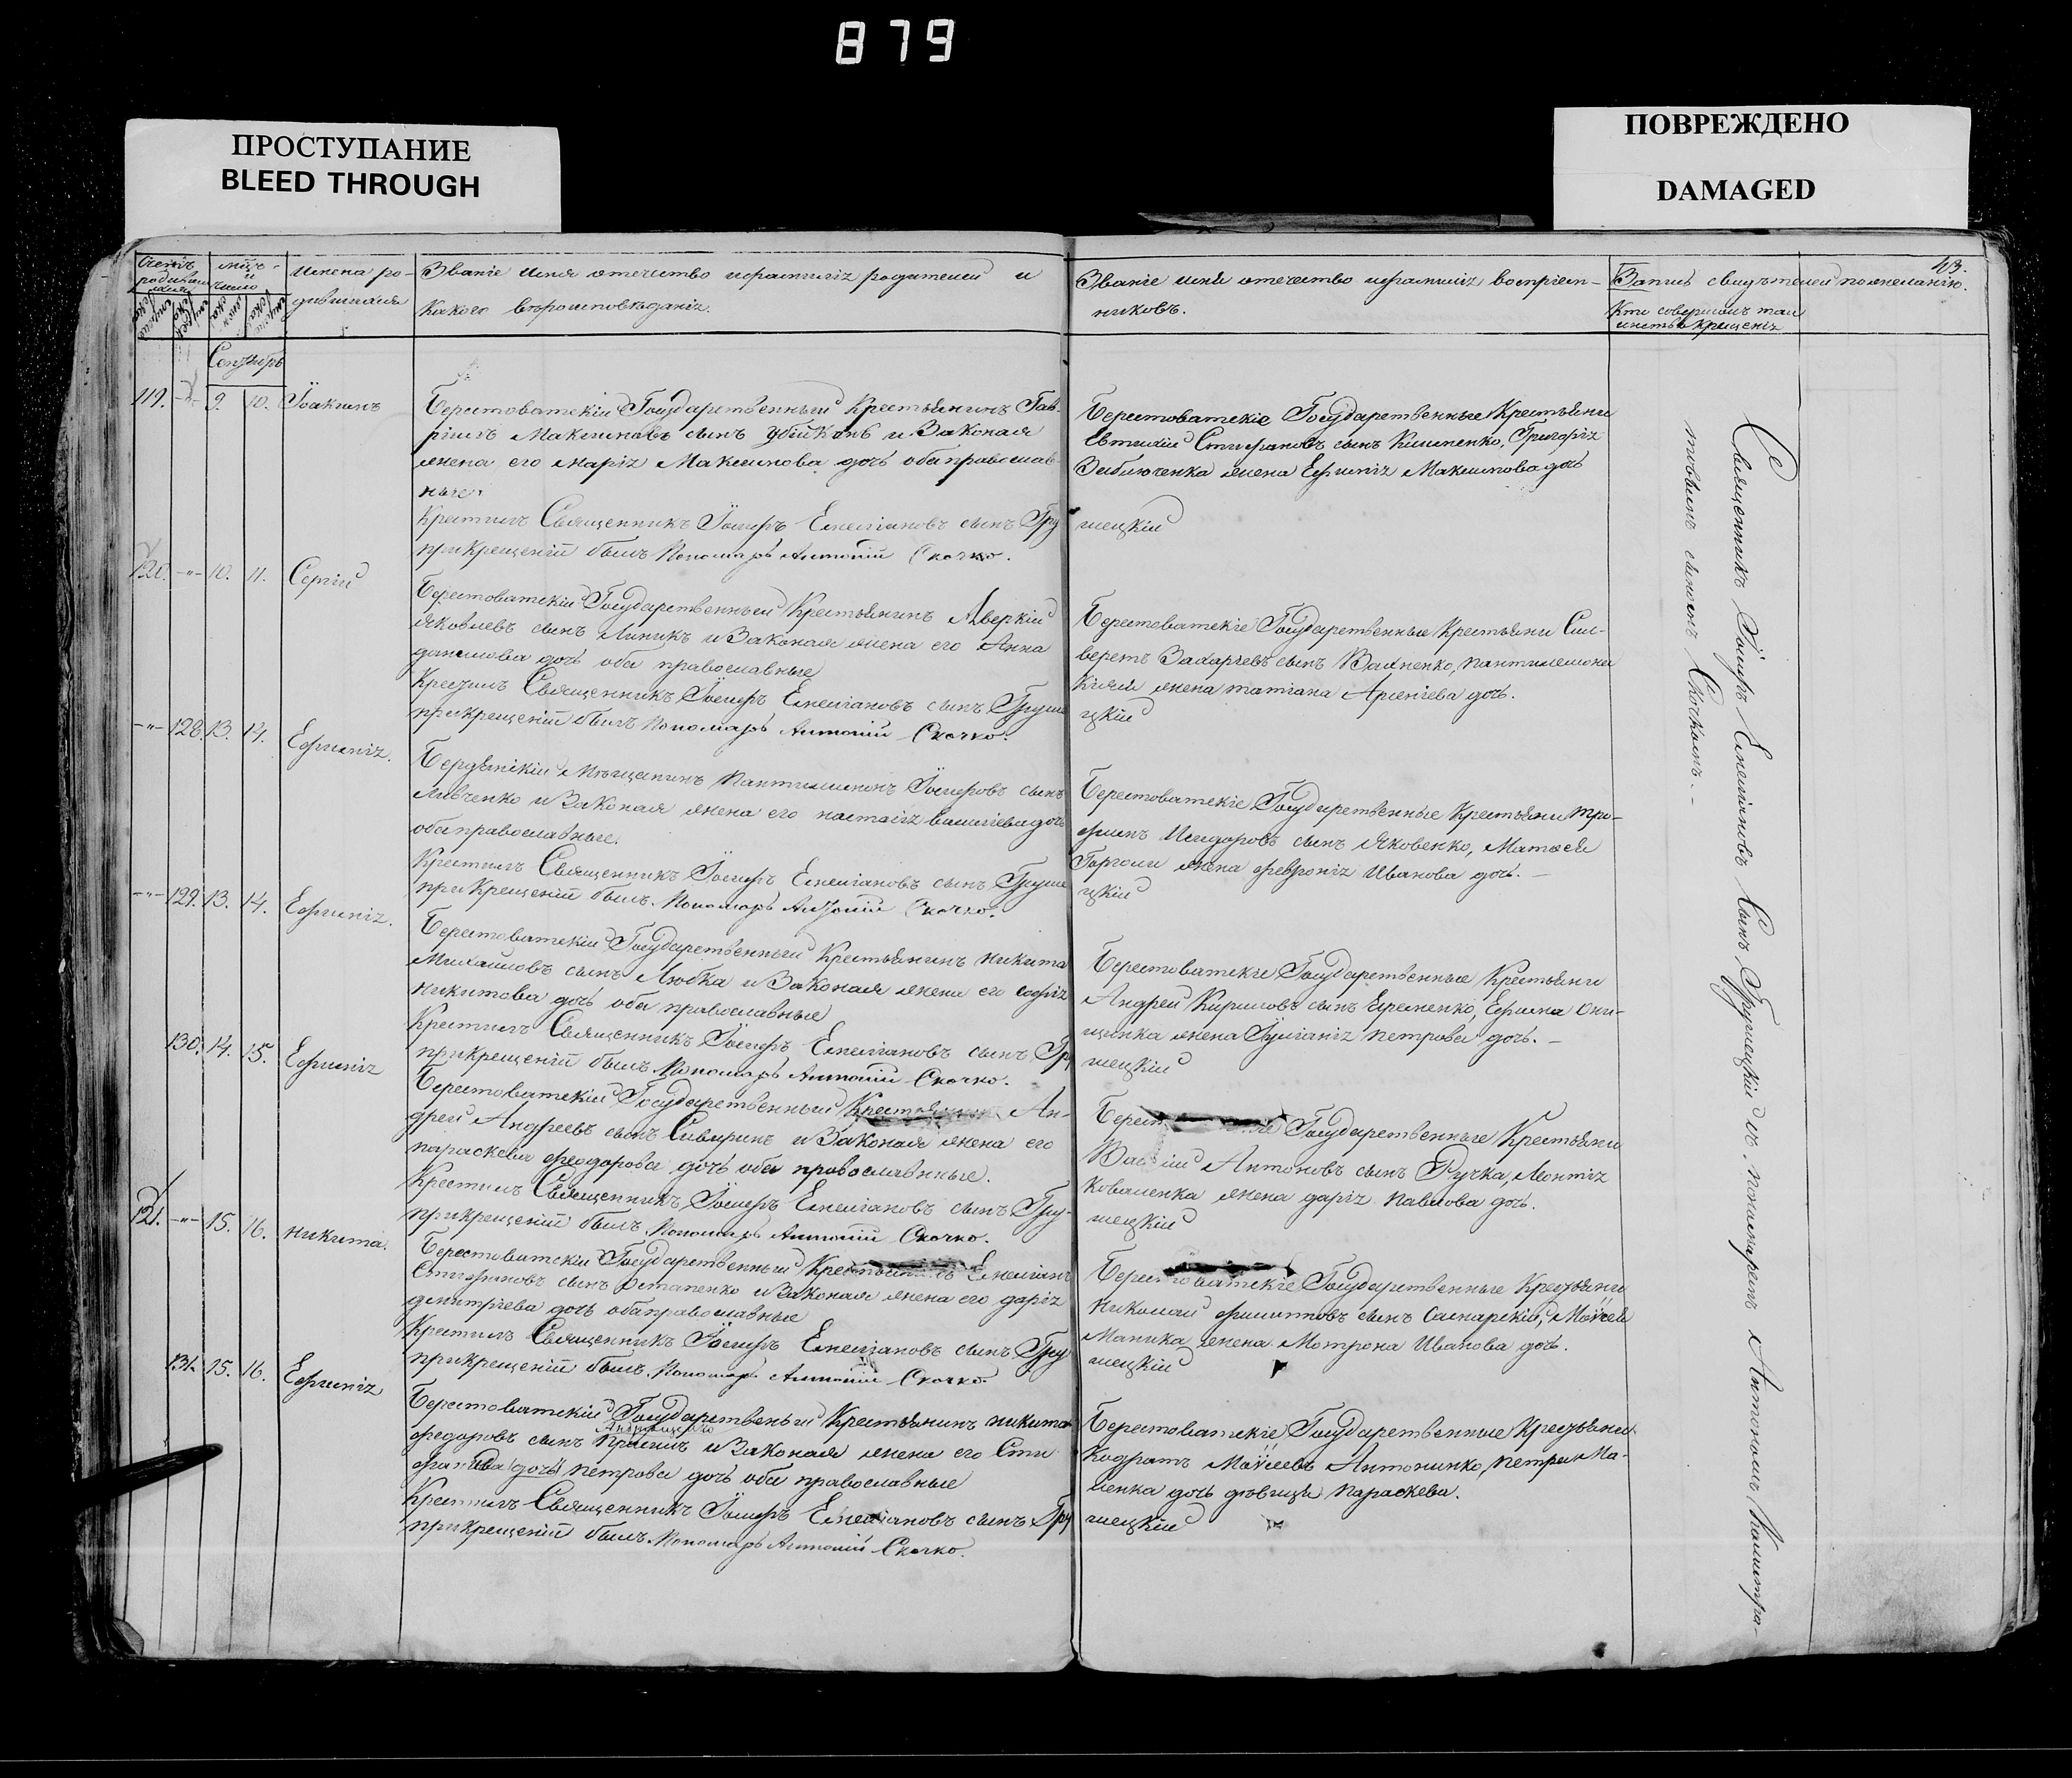 879
ПРОСТУПАНИЕ
BLEED THROUGH
ПОВРЕЖДЕНО
DAMAGED
43.
Имена ро-
дившихся
Званіе имя отечество и фамилія родителей и
Какого вѣроисповѣданія.
Званіе имя отечество и фамилія воспріем-
никовъ.
Запись свидѣтелей по желанію.
Кто совершалъ таи
инство крещенія
Сентябрь
119. -"- 9. 10. Іоакимъ
Берестоватскій Государственный Крестьянинъ Гав-
ріилъ Максимовъ сынъ и Законая
жена его марія Максимова дочь оба православ
ные.
Крестилъ Священникъ Іосифъ Емеліановъ сынъ Гру
прикрещеніи былъ Пономарь Антоній Скочко.
Берестоватскіе Государственные Крестьяни
Евтихій Стефановъ сынъ Клименко, Григорія
жена Ефимія Максимова дочь
шецкій
120. -"- 10. 11. Сергій
Берестоватскій Государственный Крестьянинъ Аверкій
Яковлевъ сынъ Линикъ и Законая жена его Анна
данилова дочь оба православные
Крестилъ Священникъ Іосифъ Емеліановъ сынъ Груше
прикрещеніи былъ Пономарь Антоній Скочко.
Берестоватскіе Государственные Крестьяни Сил-
верстъ Захаріевъ сынъ Вахненко, пантилемона
жена татіана Арсеніева дочь.
цкій
-"- 128. 13. 14. Ефимія.
Бердянскій Мѣщанинъ Пантилимонъ Іосифовъ сынъ
Ливченко и Законая жена его настасія василіева дочь
оба православные.
Крестилъ Священникъ Іосифъ Емеліановъ сынъ Груше
при Крещеніи былъ Пономарь Антоній Скочко.
Берестоватскіе Государственные Крестьяни Тро-
фимъ Исидоровъ сынъ Яковенко, Матвея
Горголи жена февронія Иванова дочь. -
цкій
-"- 129. 13. 14. Ефимія.
Берестоватскій Государственный Крестьянинъ никита
Михайловъ сынъ Любка и Законая жена его софія
никитова дочь оба православные
Крестилъ Священникъ Іосифъ Емеліановъ сынъ Гру
прикрещеніи былъ Пономарь Антоній Скочко.
Берестоватскіе Государственные Крестьяни
Андрей Кириловъ сынъ Еременко, Ефима Они-
щенка жена Іуліанія петрова дочь. -
шецкій
130. 14. 15. Ефимія
Берестоватскій Государственный Ан-
дрей Андреевъ сынъ и Законая жена его
параскева феодорова дочь оба православные.
Крестилъ Священникъ Іосифъ Емеліановъ сынъ Гру-
прикрещеніи былъ Пономарь Антоній Скочко.
Государственные Крестьяни
Антоновъ сынъ Ручка, Леонтія
Коваленка жена дарія Павлова дочь.
шецкій
121. -"- 15. 16. никита.
Берестоватскій Государственный Емеліанъ
Стефановъ сынъ Остапенко и Законая жена его дарія
димитріева дочь оба православные
Крестилъ Священникъ Іосифъ Емеліановъ сынъ Гру
прикрещеніи былъ Пономарь Антоній Скочко.
Берестоватскіе Государственные Крестьяни
Николай филиповъ сынъ Самарскій, Моисея
Маника жена Мотрона Иванова дочь.
шецкій
131. 15. 16. Ефимія
Берестоватскій Государственый Крестьянинъ никита
федоровъ сынъ и Законая жена его Сте
дочь петрова дочь оба православные
Крестилъ Священникъ Іосифъ Емеліановъ сынъ Гру
прикрещеніи былъ Пономарь Антоній Скочко.
Берестоватскіе Государственные Крестьяни
Кодратъ Моѵсеевъ Антонинко, петра Ма-
ленка дочь дѣвица Параскева.
шецкій
Священникъ Іосифъ Емеліановъ Сынъ Грушецкій съ пономаремъ Антоніемъ Калистра
товымъ сыномъ Скочкомъ. -